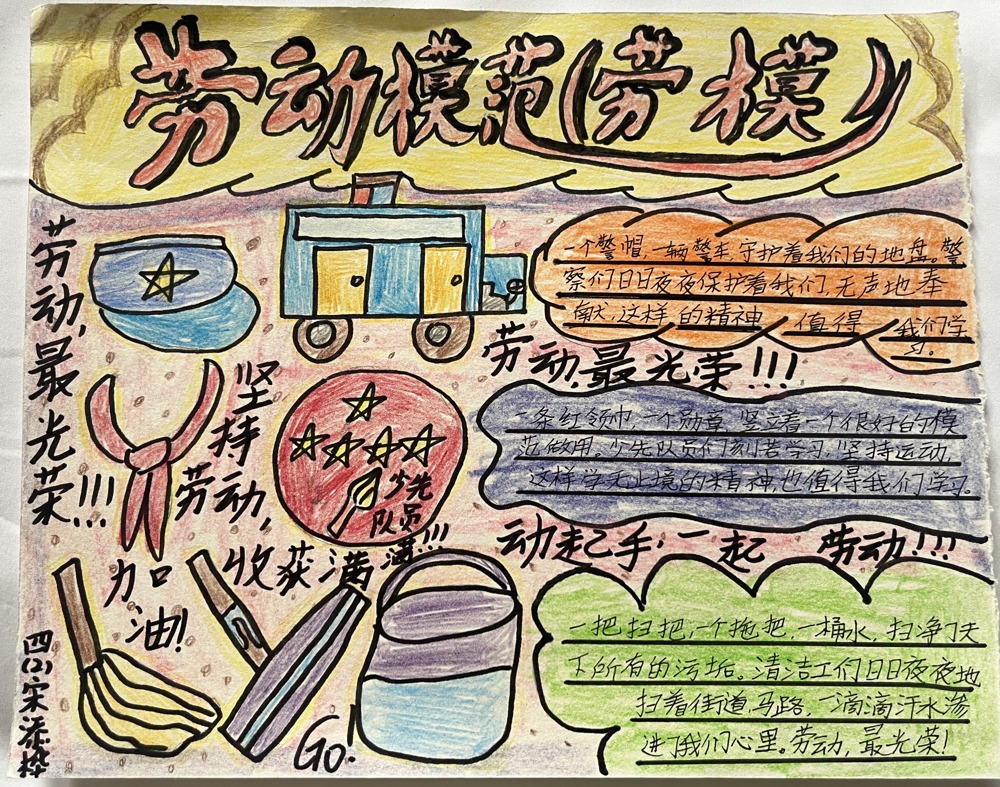 劳动模范(劳模)
劳动,最光荣!!!
一个警帽,一辆警车,守护着我们的地盘。警
察们日日夜夜保护着我们,无声地奉
献,这样的精神 值得 我们学
习。
劳动,最光荣!!!
坚持劳动,
收获满满!!!
少先
队员
一条红领巾,一个勋章,竖立着一个很好的模
范做用。少先队员们刻苦学习,坚持运动,
这样学无止境的精神,也值得我们学习
动起手,一起 劳动!!!
加油!
Go!
一把扫把,一个拖把,一桶水,扫净了天
下所有的污垢。清洁工们日日夜夜地
扫着街道,马路,一滴滴汗水渗
进了我们心里。劳动,最光荣!
四(2)宋添